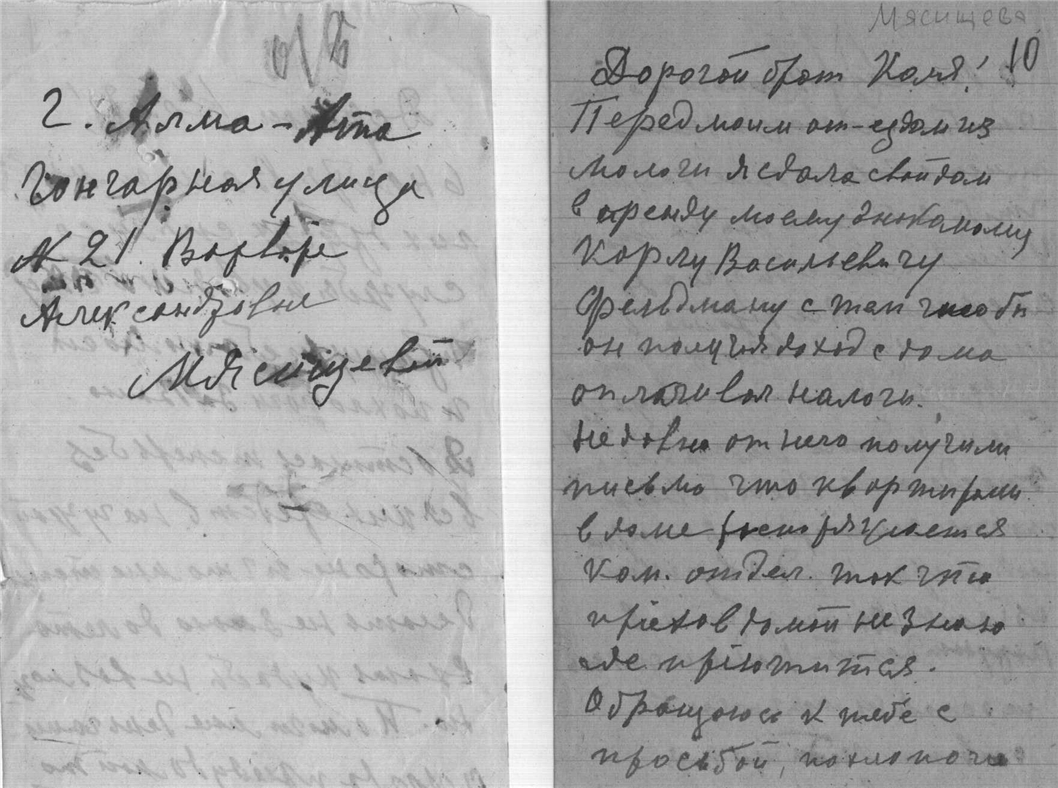 г. Алма-Ата
Гончарная улица
№ 21. Варваре
Александровне
Мясищевой
Мясищева
10
Дорогой брат Коля!
Перед моим от-ездом из
Мологи я сдала свой дом
в аренду моему знакомому
Карлу Васильевичу
Фельдману с тем чтобы
он получая доход с дома
оплачивал налоги.
Недавно от него получили
письмо что квартирами
в доме распоряжается
Ком. отдел. так что
приехав домой не знаю
где приютится.
Обращаюсь к тебе с
просьбой, похлопочи